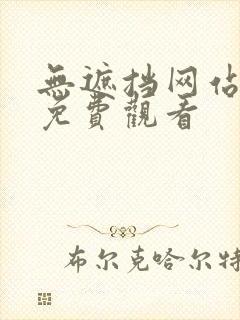 無遮挡网佔
免費觀看
布尔克哈尔特